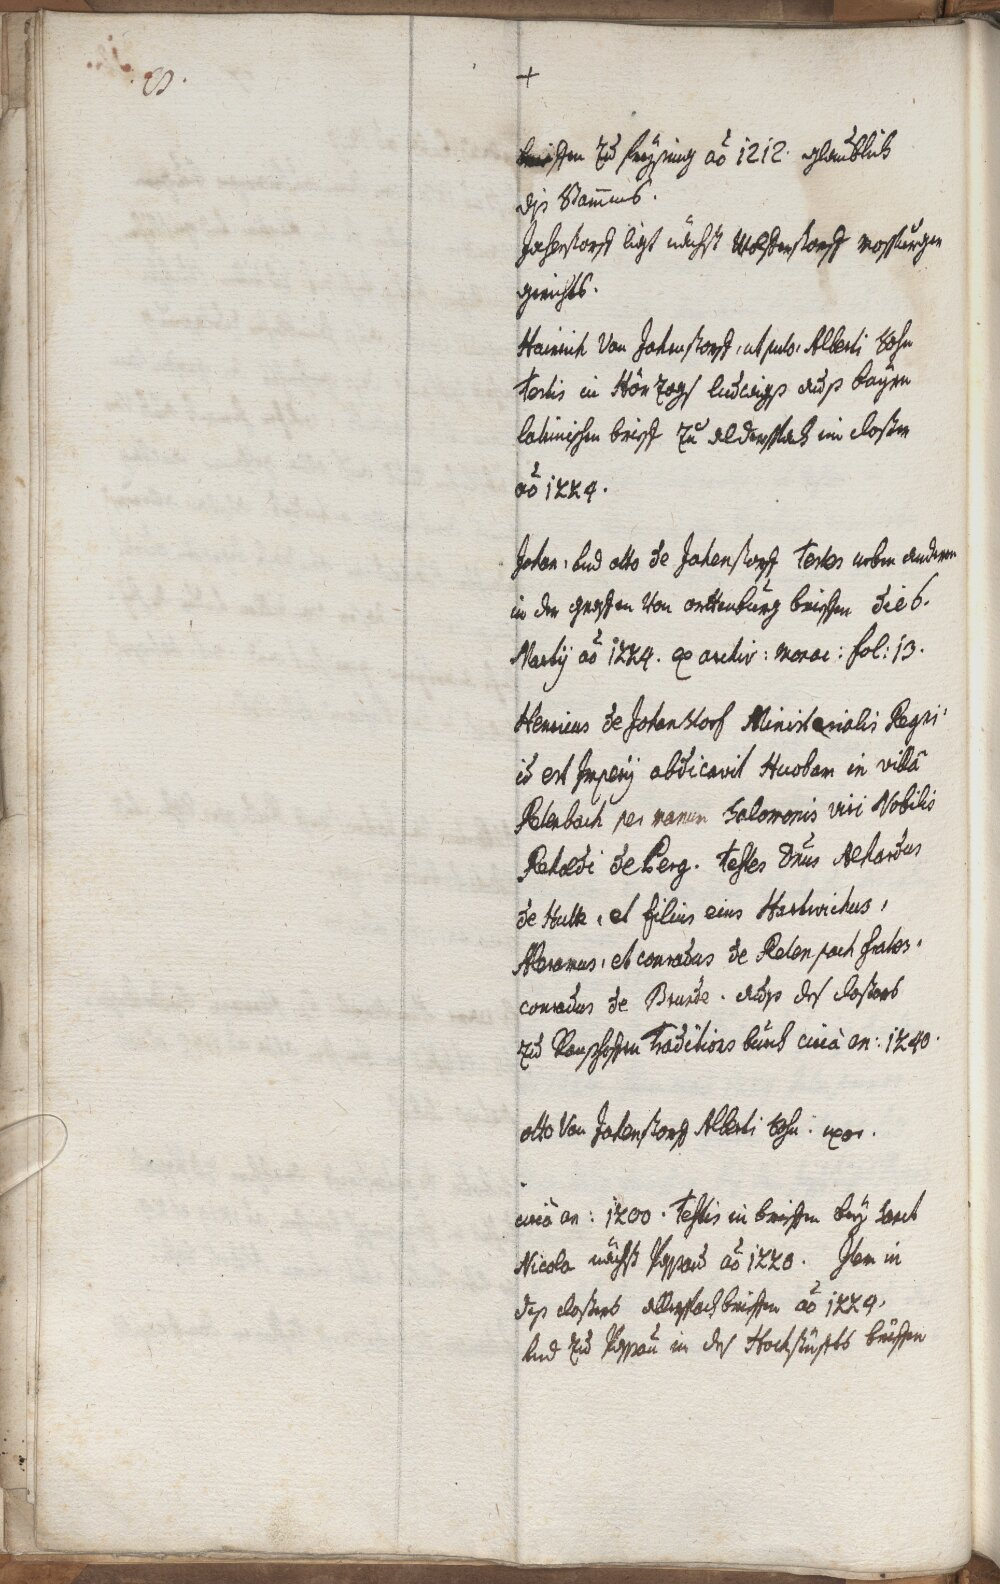 8.
+
brieffen zu freysing aō 1212. glaublich
diß Stammens.
Jahenstorff ligt nächst Wolfferstorff mosburger
gerichts.
Hainrich von Jahenstorff, ut puto, Alberti Sohn
testis in Hörzogs ludwigs auß bayrn
lateinischen brieff zu alderspach im closter
aō 1224.
Johan, und otto de Jahenstorff testes neben anderen
in der graffen von orttenburg brieffen die 6.
Martij aō 1224. ex archiv: monac: fol: 13.
Henricus de Johanstorf Ministerialis Regni,
id est Imperij abdicavit Huobam in villa
Retenbach per manum Salomonis viri Nobilis
de Perg. testes Dnus Alhardus
de Hutte, et filius eius Hartwichus,
et conradus de Retenpach frates,
conradus de Brunde. auß des closters
zu Ranshoffen Traditions buech circà an: 1240.
otto von Jahenstorff Alberti Sohn. uxor.
circà an: 1200. testis in brieffen bey Sanct
Nicola nächst Passau aō 1220. Item in
deß closters alderspach brieffen aō 1224,
und zu Passau in des Hochstüffts brieffen